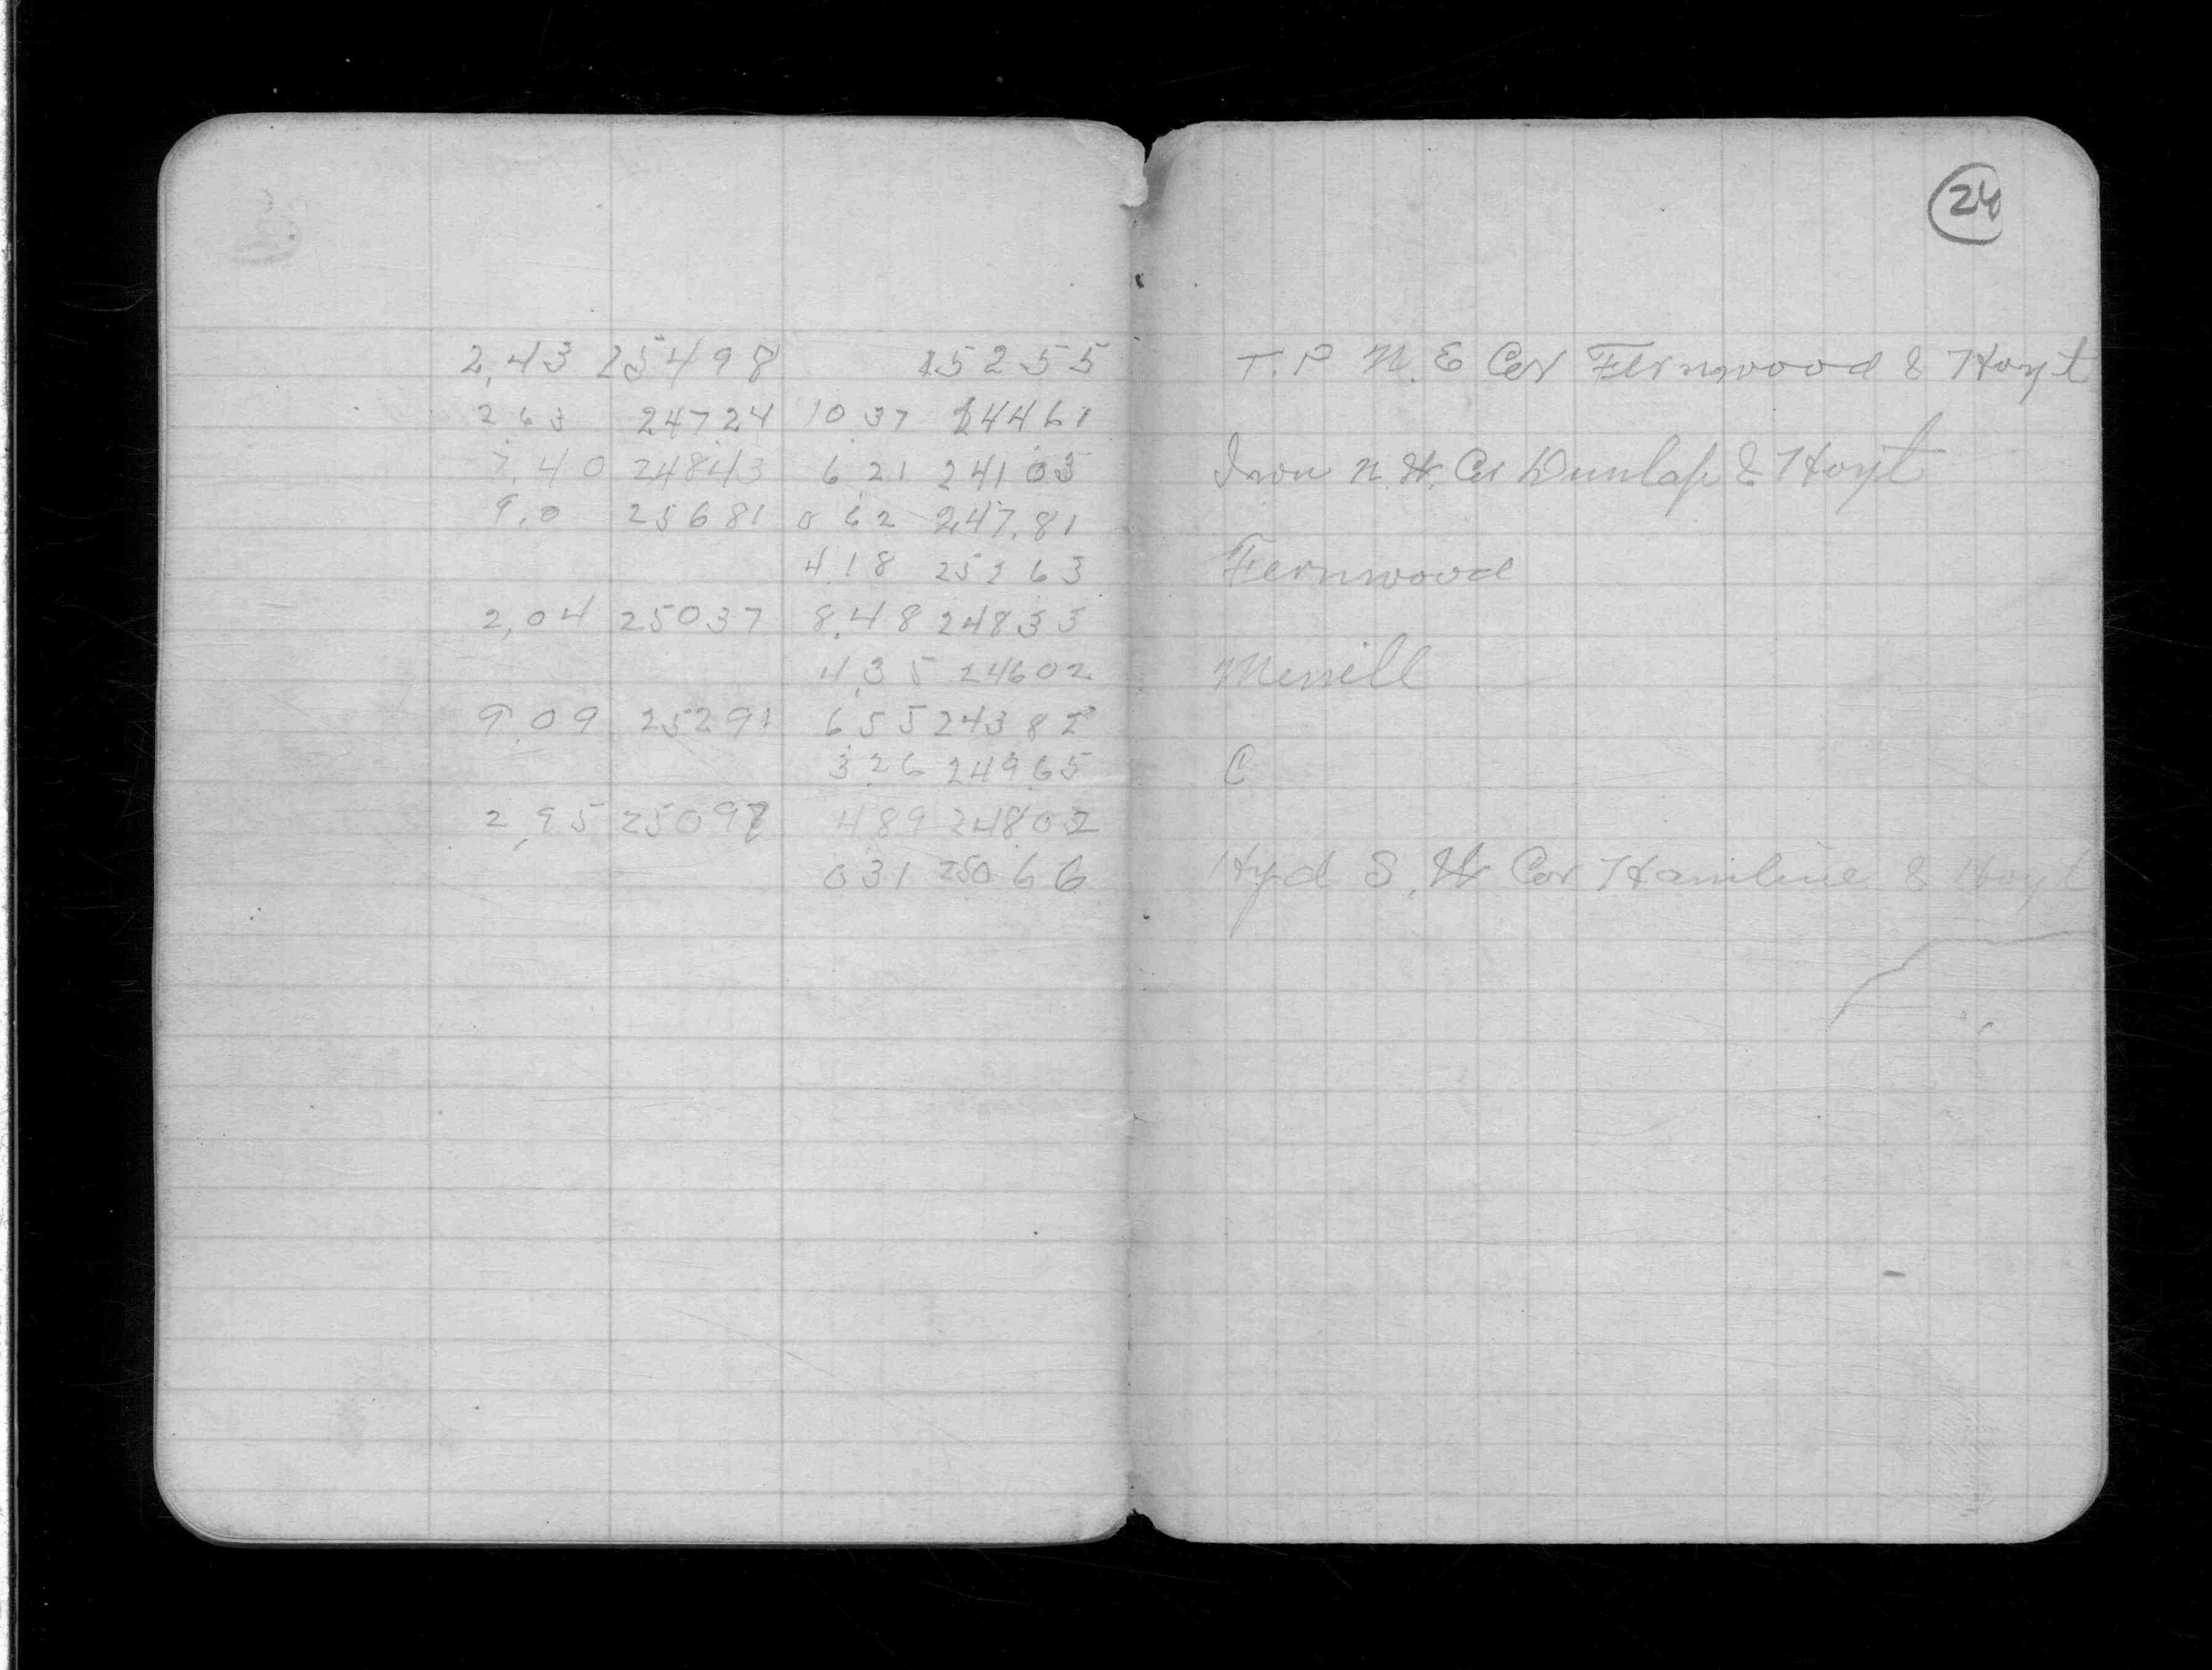 24
2,43 25498 25255 T.P N.E Cor Fernwood & Hoyt
2 63 24724 10 37 24461
7.40 24843 6 21 24103 Iron N.W. Cor Dunlap & Hoyt
9.0 25681 0 62 247.81
4.18 25263 Fernwood
2,04 25037 8.48 24833
4,35 24602 Merrill
9.09 25291 6 55 24382
3 26 24965 C
2,95 25097 4 89 24802
0 31 25066 Hyd S.W Cor Hamline & Hoyt